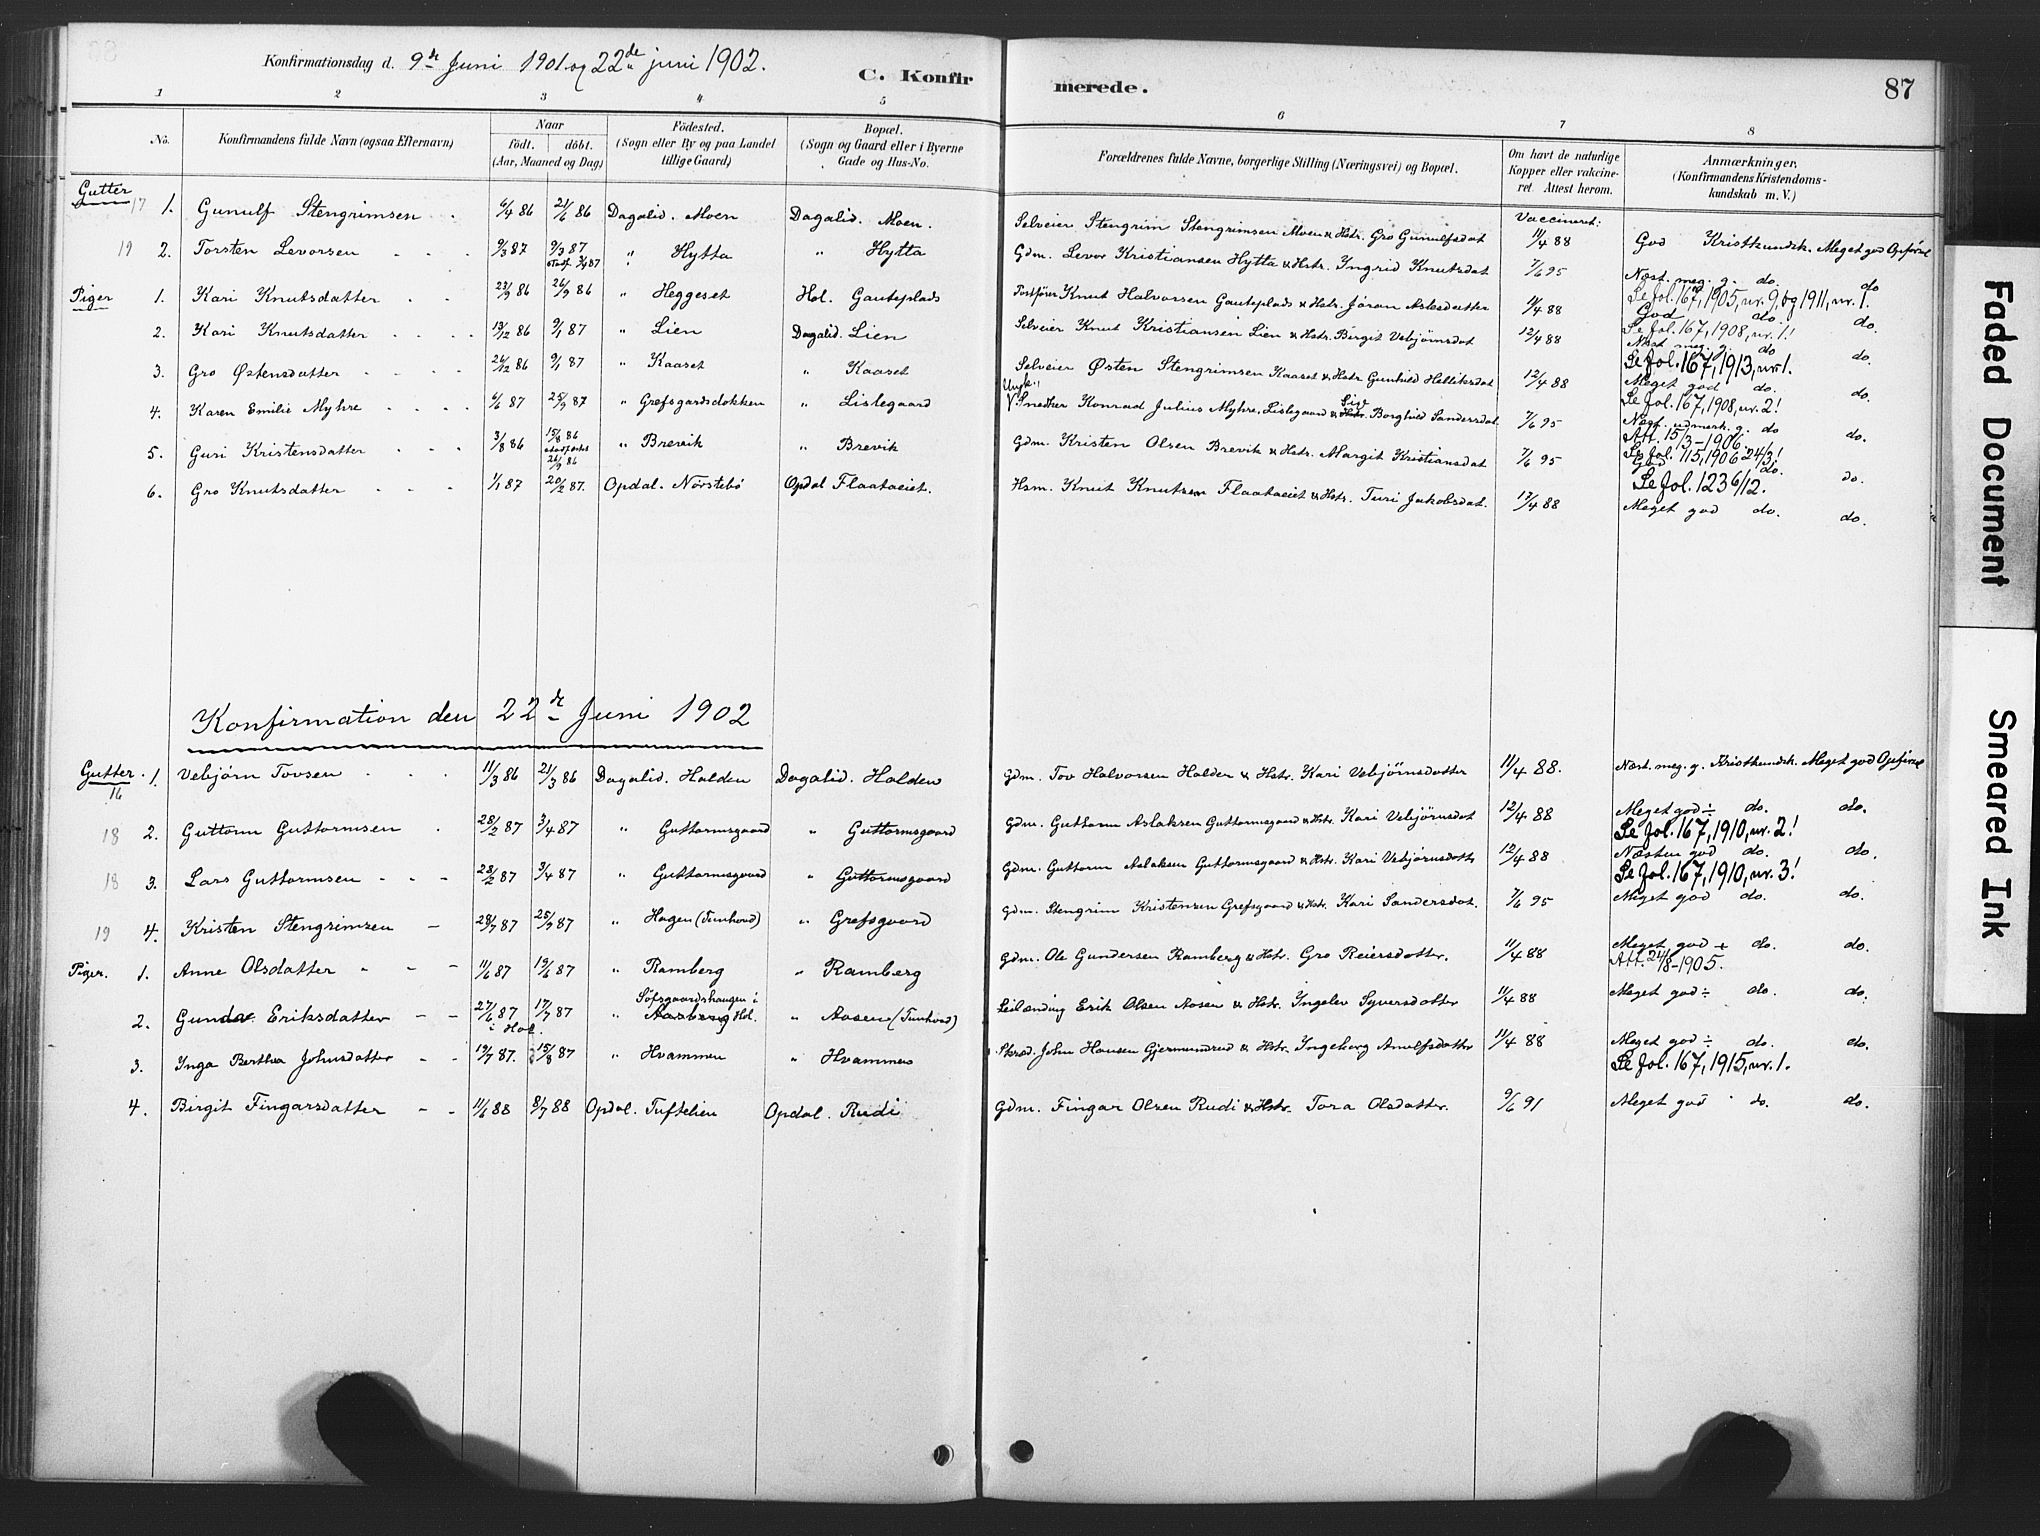 Konfirmationsdag d. 9de Juni 1901 og 22de juni 1902.
C. Konfirmerede.
87
1 2 3 4 5 6 7 8
No.
Konfirmandens fulde Navn (ogsaa Efternavn)
Naar
födt. döbt.
(Aar, Maaned og Dag)
Födested.
(Sogn eller By og paa Landet
tillige Gaard)
Bopæl.
(Sogn og Gaard eller i Byerne
Gade og Hus-No.
Forældrenes fulde Navne, borgerlige Stilling (Næringsvei) og Bopæl.
Om havt de naturlige
Kopper eller vakcine-
ret. Attest herom.
Anmærkninger.
(Konfirmandens Kristendoms-
kundskab m. V.)
Gutter
Vaccineret:
17 1. Gunulf Stengrimsen 6/4 86 21/6 86 Dagalid. Moen Dagalid. Moen. Selveier Stengrim Stengrimsen Moen & Hstr. Gro Gunulfsdat 11/4 88 God Kristkundsk. Meget god Opførsel
19 2. Torsten Levorsen 9/3 87 9/3 87 stadf. 3/4 87 " Hytta " Hytta Gdm. Levor Kristiansen Hytta & Hstr. Ingrid Knutsdat 7/6 95 Næst. meg. g. do. do
Piger 1. Kari Knutsdatter 22/9 86 26/9 86 " Heggeset Hol. Gauteplads Postfører Knut Halvorsen Gauteplads & Hstr. Jøran Aslesdatter 11/4 88 Se Jol. 167, 1905, nr. 9, og 1911, nr. 1.
God do. do.
2. Kari Knutsdatter 13/12 86 9/1 87 " Lien Dagalid. Lien Selveier Knut Kristiansen Lien & Hstr. Birgit Vebjørnsdat 12/4 88 Se Jol. 167, 1908, nr. 1!
Næst meg. g. do do.
3. Gro Østensdatter 26/12 86 9/1 87 " Kaaset " Kaaset Selveier Østen Stengrimsen Kaaset & Hstr Gunhild Helliksdat 12/4 88 Se Jol. 167, 1913, nr. 1.
Meget god do. do.
4. Karen Emilie Myhre 6/6 87 25/9 87 " Grefsgardsdokken " Lislegaard Ungk. Snedker Konrad Julius Myhre, Lislegaard & Borghild Sandersdat. 7/6 95 Se Jol. 167, 1908, nr. 2!
Næst. udmærk. g. do do.
5. Guri Kristensdatter 3/8 86 15/8 86 stadfæstet 26/9 86 " Brevik " Brevik Gdm. Kristen Olsen Brevik & Hstr. Margit Kristiansdat 7/6 95 Att. 15/3-1906.
Se Jol. 115, 1906 24/3!
God do. do.
6. Gro Knutsdatter 1/1 87 20/2 87. Opdal. Nørstebø Opdal Flaataeiet. Hsm. Knut Knutsen Flaataeiet & Hstr. Turi Jakobsdat. 17/4 88 Se Jol. 123 6/12.
Meget god do. do.
Konfirmation den 22de Juni 1902
Gutter. 16 1. Vebjørn Tovsen 11/3 86 21/3 86 Dagalid. Halden Dagalid. Halden Gdm. Tov Halvorsen Halden & Hstr. Kari Vebjørnsdatter 11/4 88. Næst. meg. g. Kristkundsk. Meget god Opførsel
18 2. Guttorm Guttormsen 28/2 87 3/4 87 " Guttormsgaard " Guttormsgaard Gdm. Guttorm Aslaksen Guttormsgaard & Hstr. Kari Vebjørnsdat 12/4 88 Meget god ÷ do. do.
Se Jol. 167, 1910, nr. 2!
18 3. Lars Guttormsen 28/2 87 3/4 87 " Guttormsgaard " Guttormsgaard Gdm. Guttorm Aslaksen Guttormsgaard & Hstr. Kari Vebjørnsdattr 12/4 88 Næsten god do. do.
Se Jol. 167, 1910, nr. 3!
19 4. Kristen Stengrimsen 28/7 87 25/9 87 " Hagen (Tunhovd) " Grefsgaard Gdm. Stengrim Kristensen Grefsgaard & Hstr. Kari Sandersdat. 7/6 95 Meget god do. do.
Piger. 1. Anne Olsdatter 11/6 87 19/6 87 " Ramberg " Ramberg Gdm. Ole Gundersen Ramberg & Hstr. Gro Reiersdatter. 11/4 88 Meget god + do. do.
Att. 24/8-1905.
2. Eriksdatter 27/6 87 17/7 87 i Hol. " Søfsgaardshaugen i Hol. " Aasen (Tunhovd) Leilænding Erik Olsen Aasen & Hstr. Ingelev Syversdatter 11/4 88 Meget god ÷ do. do.
3. Inga Bertha Johnsdatter 19/7 87. 15/8 87 " Hvammen " Hvammen Skræd. John Hansen Gjermundrud & Hstr. Ingeborg Arnulfsdattr 11/4 88 Meget god ÷ do. do.
Se Jol. 167, 1915, nr. 1.
4. Birgit Fingarsdatter 11/6 88 8/7 88 Opdal. Tuftelien Opdal. Rudi Gdm. Fingar Olsen Rudi & Hstr. Tora Olsdatter. 9/6 91 Meget god do. do.
Faded Document
Smeared Ink